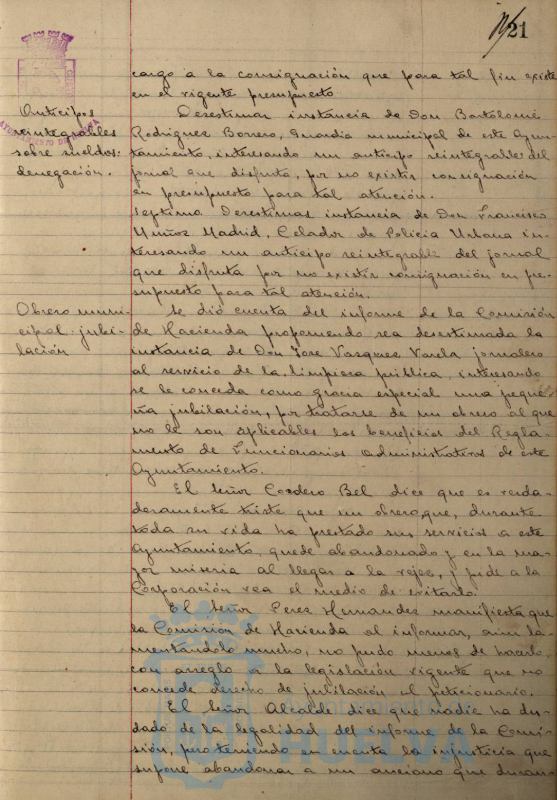 21
cargo á la consignación que para tal fin existe
en el vigente presupuesto.
Anticipos
reintegrables
sobre sueldos:
denegación.
Desestimar instancia de Don Bartolomé
Rodriguez Borrero, Guardia municipal de este Ayun-
tamiento, interesando un anticipo reintegrable del
jornal que disfruta, por no existir consignación
en presupuesto para tal atención.
Septimo. Desestimar instancia de Don Francisco
Muñoz Madrid, Celador de Policia Urbana in-
teresando un anticipo reintegrable del jornal
que disfruta por no existir consignación en pre-
supuesto para tal atención.
Obrero muni-
cipal: jubi-
lación
Se dió cuenta del informe de la Comisión
de Hacienda proponiendo sea desestimada la
instancia de Don José Vazquez Varela jornalero
al servicio de la limpieza pública, interesando
se le conceda como gracia especial una peque-
ña jubilación, por tratarse de un obrero al que
no le son aplicables los beneficios del Regla-
mento de Funcionarios administrativos de este
Ayuntamiento.
El Señor Cordero Bel dice que es verda-
deramente triste que un obrero que, durante
toda su vida ha prestado sus servicios a este
Ayuntamiento, quede abandonado y en la ma-
yor miseria al llegar a la vejez, y pide a la
Corporación vea el medio de evitarlo.
El Señor Perez Hernandez manifiesta que
la Comisión de Hacienda al informar, aun la-
mentándolo mucho, no pudo menos de hacerlo
con arreglo a la legislación vigente que no
concede derecho de jubilación al peticionario.
El Señor Alcalde dice que nadie ha du-
dado de la legalidad del informe de la Comi-
sión, pero teniendo en cuenta la injusticia que
supone abandonar a un anciano que duran-
HUELVA